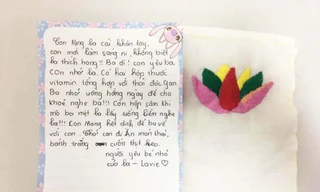 Con tặng ba cái khăn tay,
con mới làm sáng ni, không biết
ba thích hong!! Ba ơi! con yêu ba.
Con nhớ ba. Có hai hộp thuốc
vitamin tổng hợp với thải độc gan
Ba nhớ uống hằng ngày để cho
khoẻ nghe ba!!! Con hấp sâm khi
mô ba mệt ba lấy uống liền nghe
ba!!! Con mong hết dịch để ba về
với con. Chở con đi ăn món thái,
bánh tráng cuốn thịt heo.
người yêu bé nhỏ
của ba - Lavie